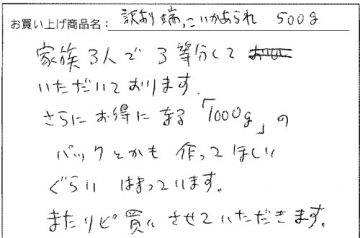 お買い上げ商品名: 訳あり端っこいかあられ 500g
家族3人で3等分して
いただいております。
さらにお得になる「1000g」の
パックとかも作ってほしい
ぐらいはまっています。
またリピ買いさせていただきます。